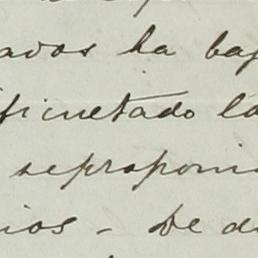 avos ha baj
ificultado la
se proponi
ios - De d